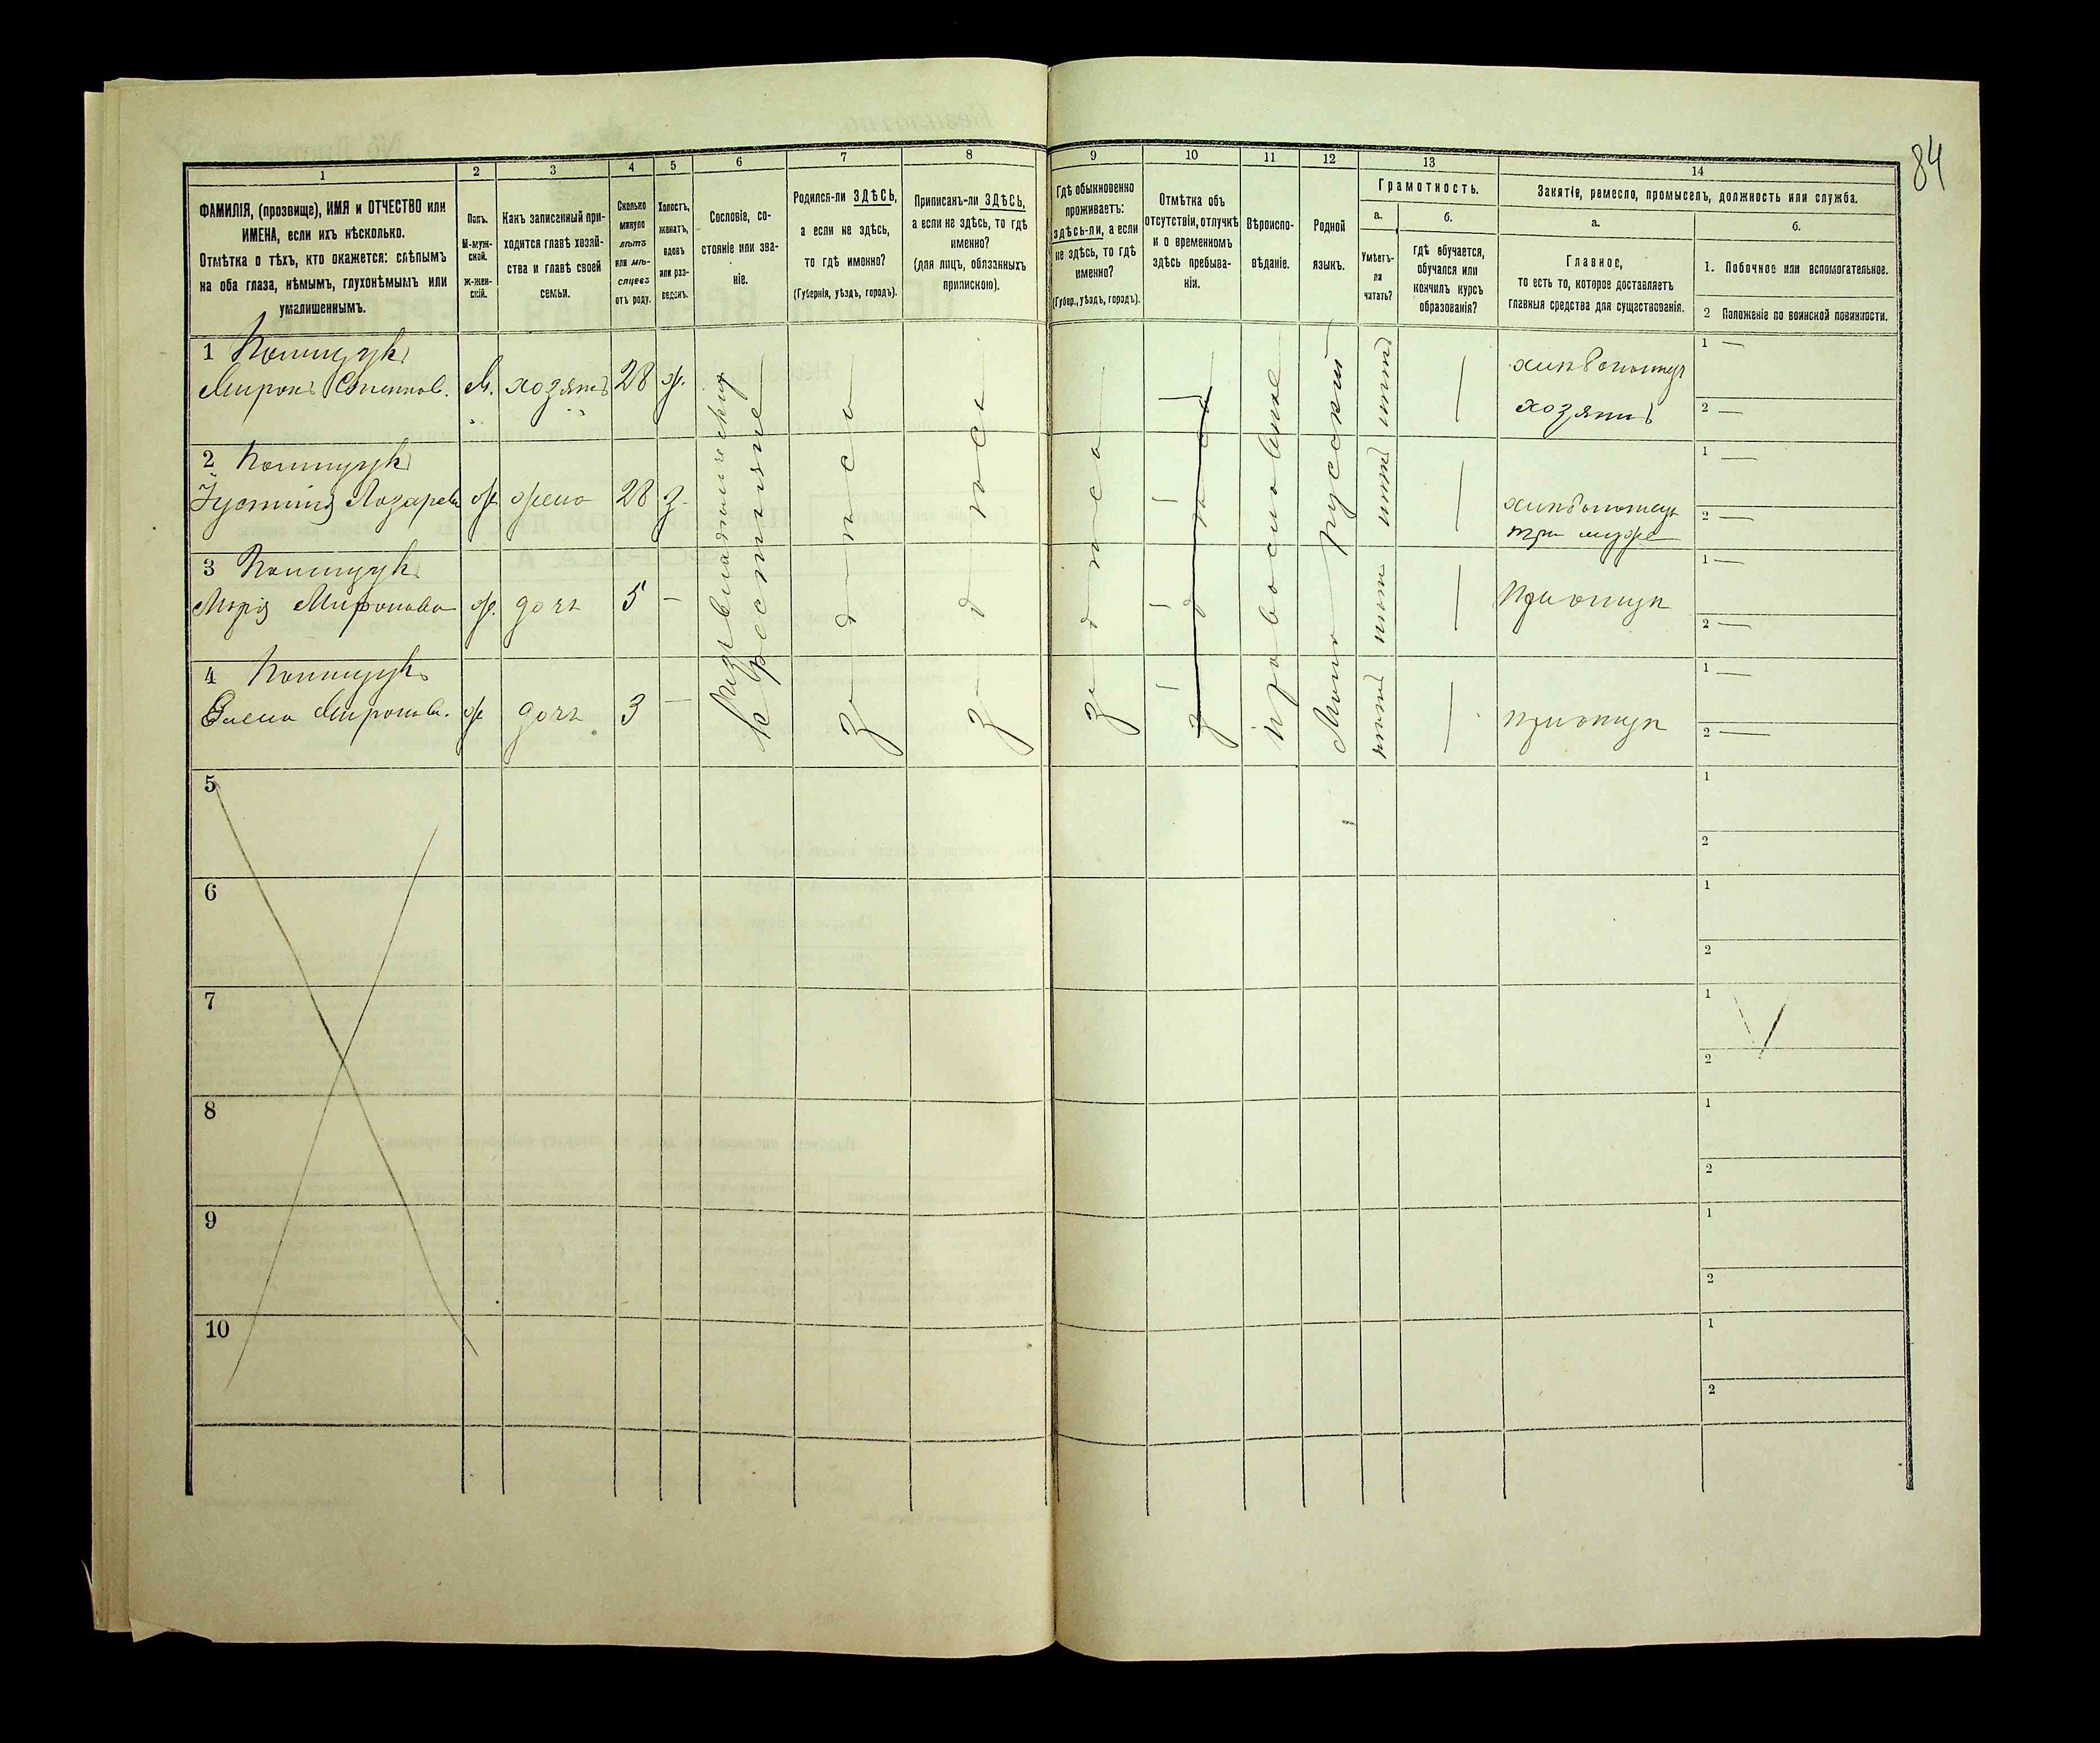 84
1
2
3
4
5
6
7
8
9
10
11
12
13
14
ФАМИЛІЯ, (прозвище), ИМЯ и ОТЧЕСТВО или
ИМЕНА, если ихъ нѣсколько.
Отмѣтка о тѣхъ, кто окажется: слѣпымъ
на оба глаза, нѣмымъ, глухонѣмымъ или
умалишеннымъ.
Полъ.
М-муж-
ской.
ж-жен-
скій.
Какъ записанный при-
ходится главѣ хозяй-
ства и главѣ своей
семьи.
Сколько
минуло
лѣтъ
или мѣ-
сяцевъ
отъ роду.
Холостъ,
женатъ,
вдовъ
или раз-
веденъ.
Сословіе, со-
стояніе или зва-
ніе.
Родился-ли ЗДѢСЬ,
а если не здѣсь,
то гдѣ именно?
(Губернія, уѣздъ, городъ).
Приписанъ-ли ЗДѢСЬ,
а если не здѣсь, то гдѣ
именно?
(для лицъ, обязанныхъ
припискою).
Гдѣ обыкновенно
проживаетъ:
здѣсь-ли, а если
не здѣсь, то гдѣ
именно?
(Губер., уѣздъ, городъ).
Отмѣтка объ
отсутствіи, отлучкѣ
и о временномъ
здѣсь пребыва-
ніи.
Вѣроиспо-
вѣданіе.
Родной
языкъ.
Грамотность.
а.
б.
Умѣетъ-
ли
читать?
Гдѣ обучается,
обучался или
кончилъ курсъ
образованія?
Занятіе, ремесло, промыселъ, должность или служба.
а.
б.
Главное,
то есть то, которое доставляетъ
главныя средства для существованія.
1. Побочное или вспомогательное.
2 Положеніе по воинской повинности.
1
Миронъ М. хозяинъ 28 ж.
хозяинъ
1 —
2 —
2
Лазарева ж жена 28 з.
при мужѣ
1 —
2 —
3
Миронова ж. дочь 5 —
1 —
2 —
4
Елена Миронова. ж дочь 3 —
1 —
2 —
крестьяне
здѣсь
здѣсь
здѣсь
здѣсь
православное
Мало русскій
нѣтъ нѣтъ нѣтъ нѣтъ
5
1
2
6
1
2
7
1
2
8
1
2
9
1
2
10
1
2